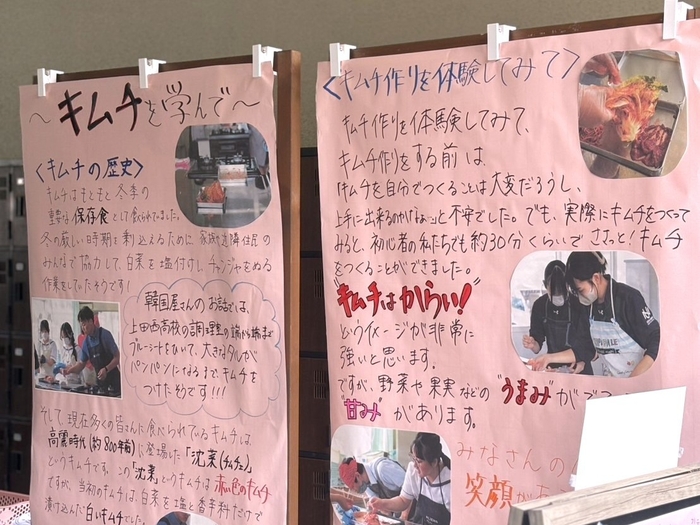 ～キムチを学んで～
〈キムチの歴史〉
キムチはもともと冬季の
重要な保存食として食べられてきました。
冬の厳しい時期を乗り越えるために、家族や近隣住民の
みんなで協力して、白菜を塩付けし、チャンジャをぬる
作業をしていたそうです!
韓国屋さんのお話では、
上田西高校の調理室の端から端まで
ブルーシートをひいて、大きなタルが
パンパンになるまで、キムチを
つけたそうです!!!
そして、現在多くの皆さんに食べられているキムチは、
高麗時代(約800年前)に登場した「沈菜(チムチェ)」
というキムチです。この「沈菜」というキムチは赤色のキムチ
ですが、当初のキムチは、白菜を塩と香辛料だけで
漬け込んだ白いキムチでした。
〈キムチ作りを体験してみて〉
キムチ作りを体験してみて、
キムチ作りをする前は、
「キムチを自分でつくることは大変だろうし、
上手に出来るのかなぁ…」と不安でした。でも、実際にキムチをつくって
みると、初心者の私たちでも約30分くらいでささっと!キムチ
をつくることができました。
"キムチはからい!"
というイメージが非常に
強いと思います。
ですが、野菜や果実などの"うまみ"がで
"甘み"があります。
みなさんの
笑顔が